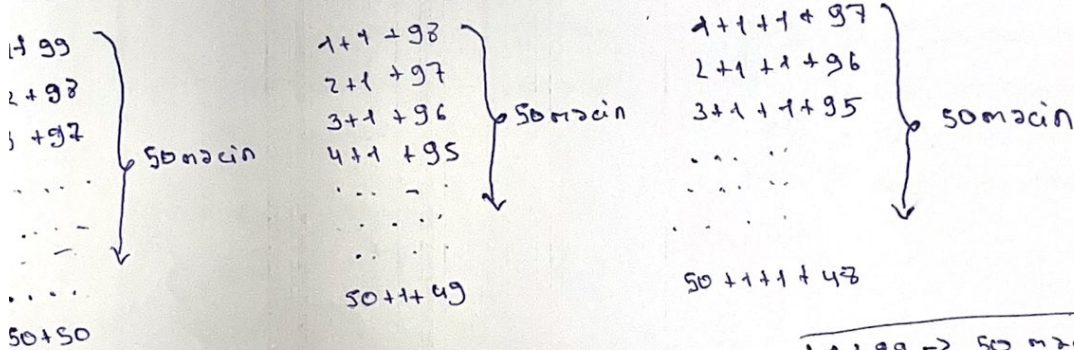 1+99
2+98
3+97
50 način
50+50
1+1+98
2+1+97
3+1+96
4+1+95
50 način
50+1+49
1+1+1+97
2+1+1+96
3+1+1+95
50 način
50+1+1+48
99 → 50